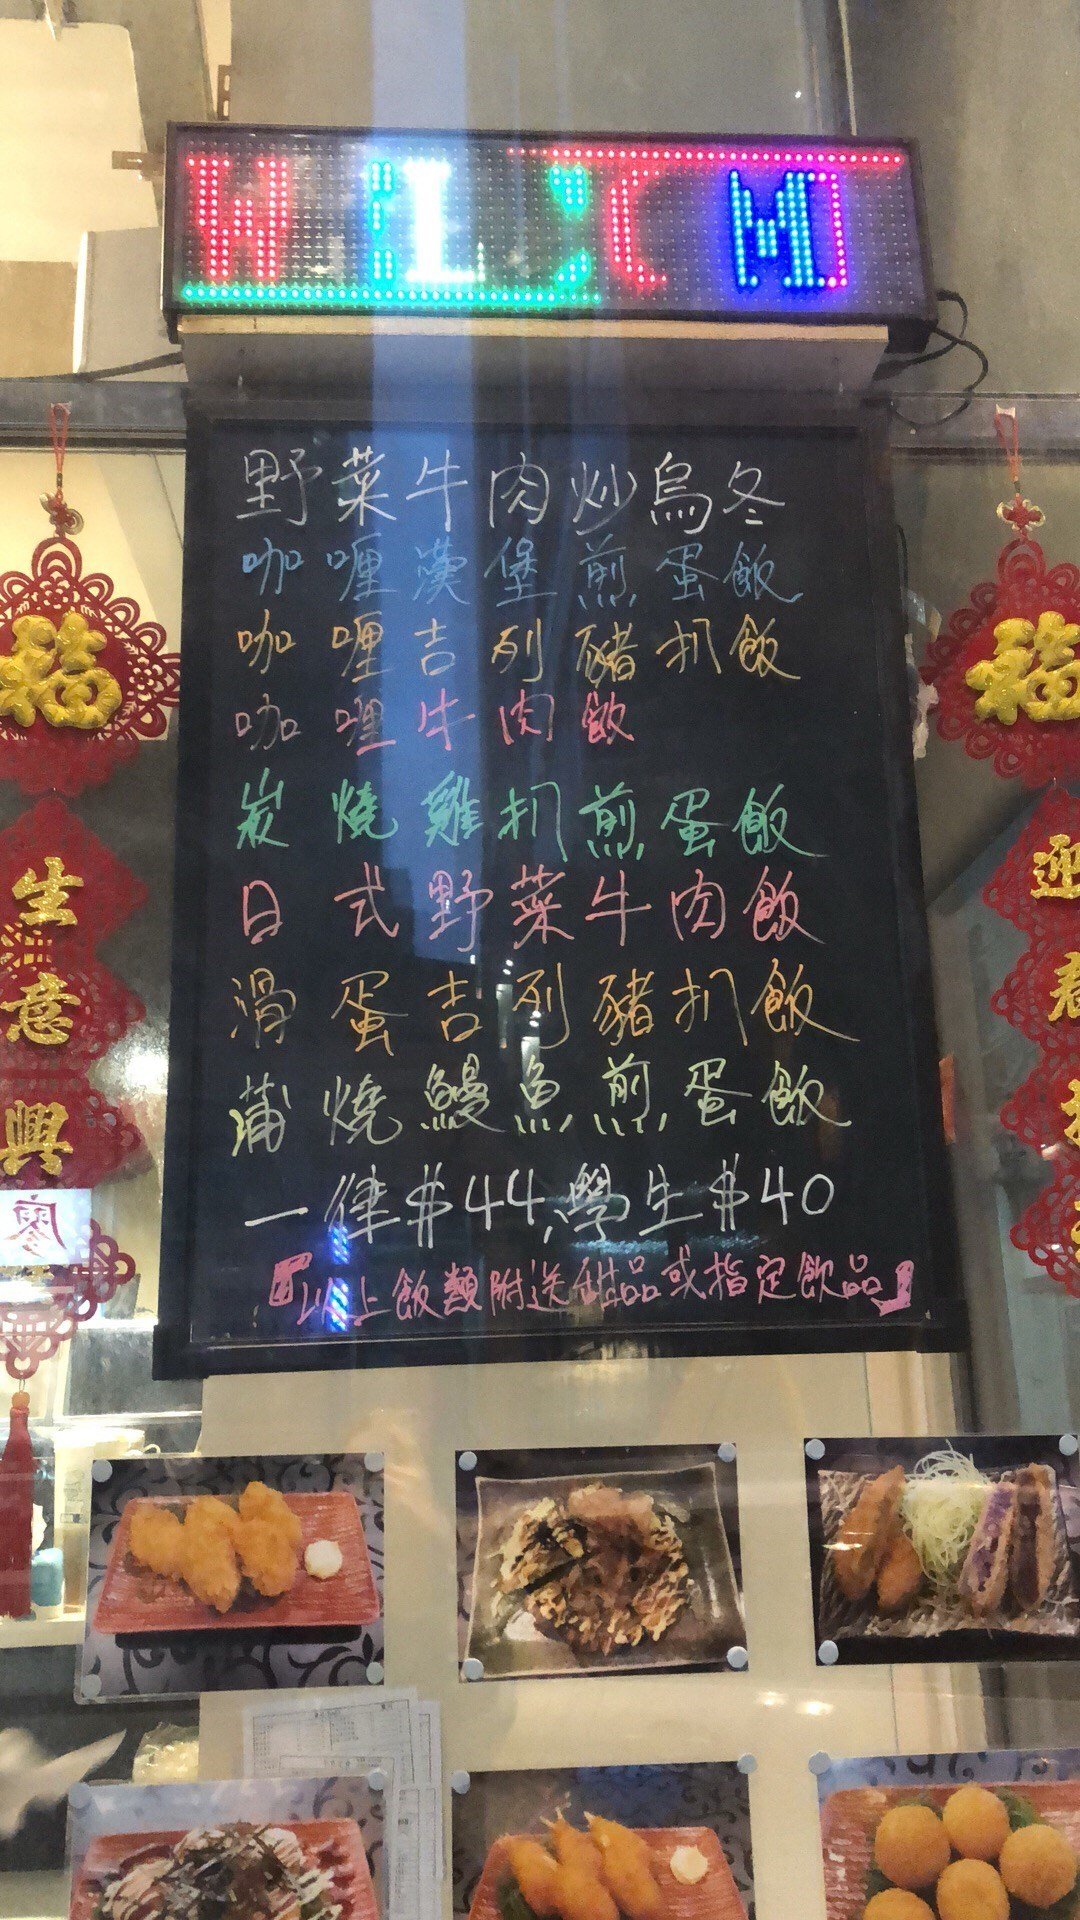 野菜牛肉炒烏冬
咖喱漢堡煎蛋飯
咖喱吉列豬扒飯
咖哩牛肉飯
炭燒雞扒煎蛋飯
日式野菜牛肉飯
滑蛋吉列豬扒飯
蒲燒鰻魚煎蛋飯
一律$44,學生$40
『以上飯類附送甜品或指定飲品』
福
生意興
福
迎春
廖